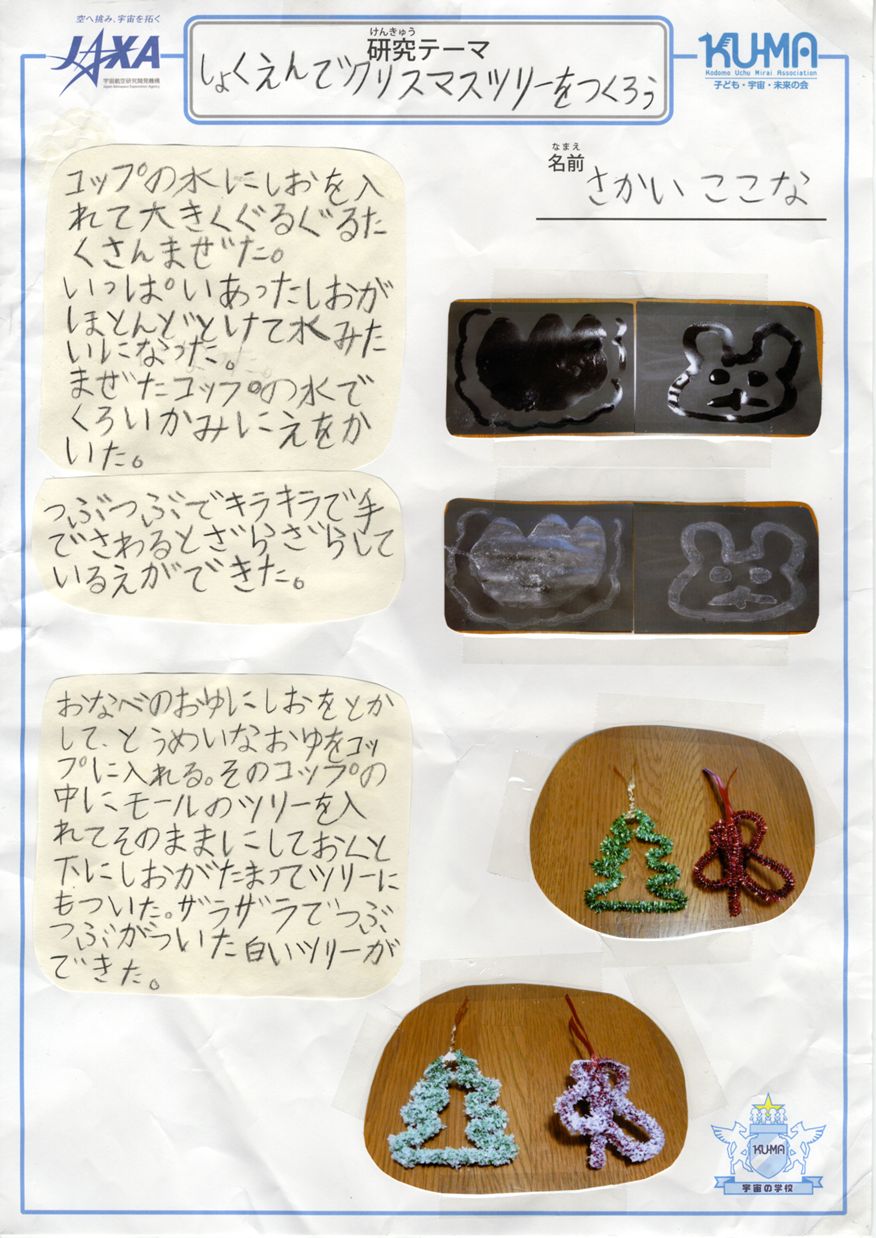 空へ挑み、宇宙を拓く
JAXA
宇宙航空研究開発機構
Japan Aerospace Exploration Agency
けんきゅう
研究テーマ
しょくえんでクリスマスツリーをつくろう
KU-MA
Kodomo Uchu Mirai Association
子ども・宇宙・未来の会
なまえ
名前
さかい ここな
コップの水にしおを入
れて大きくぐるぐるた
くさんまぜた。
いっぱいあったしおが
ほとんどとけて水みた
いになった。
まぜたコップの水で
くろいかみにえをか
いた。
つぶつぶでキラキラで手
でさわるとざらざらして
いるえができた。
おなべのおゆにしおをとか
して、とうめいなおゆをコッ
プに入れる。そのコップの
中にモールのツリーを入
れてそのままにしておくと
下にしおがたまってツリーに
もついた。ザラザラでつぶ
つぶがついた白いツリーが
できた。
KU-MA
宇宙の学校